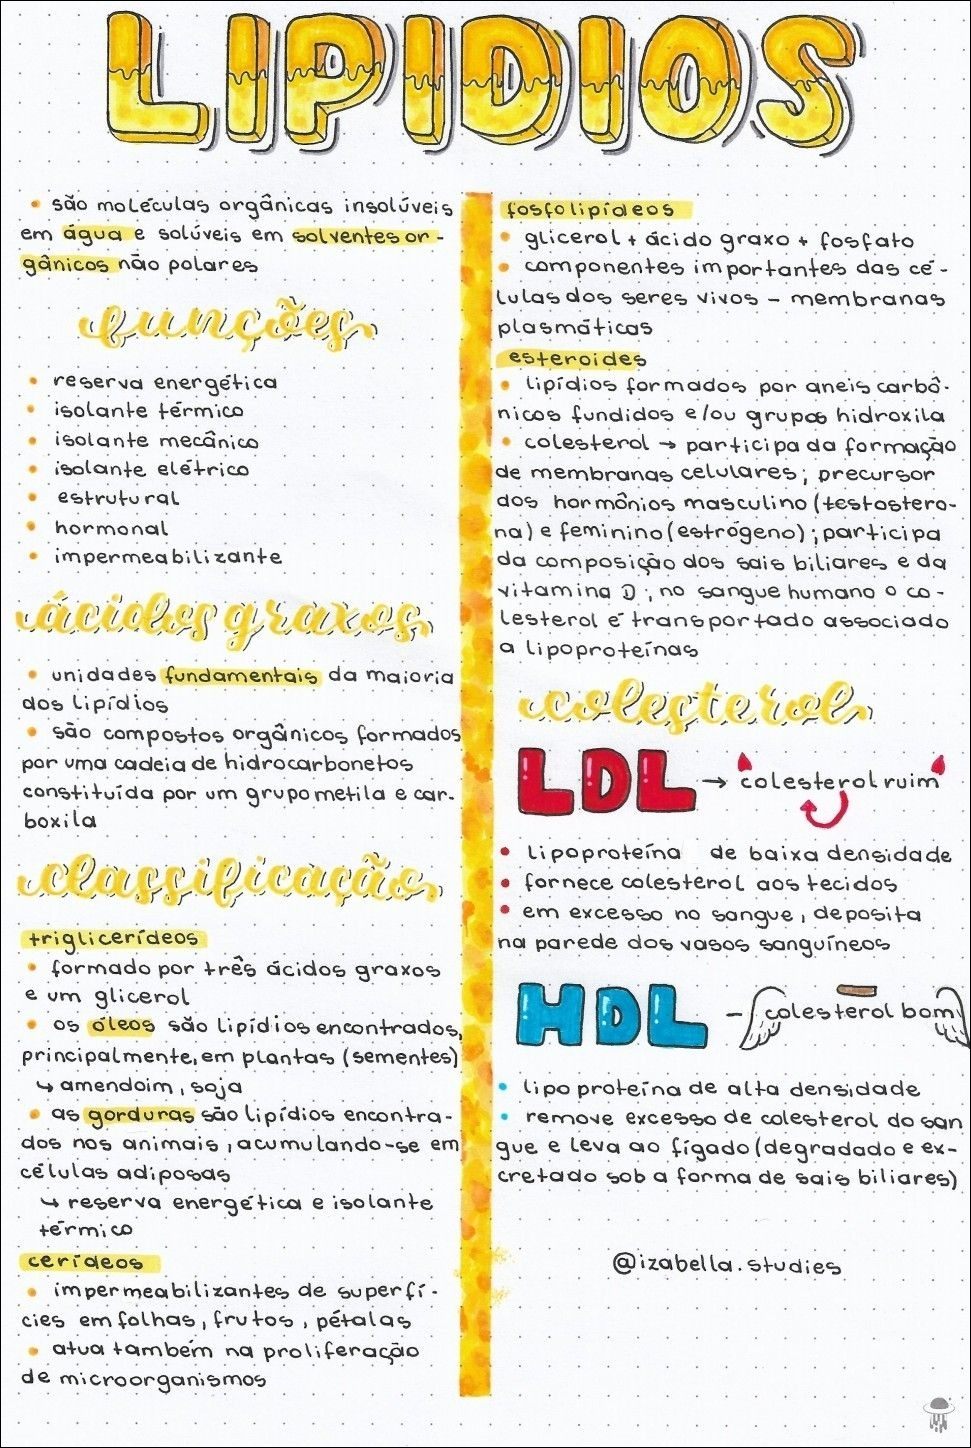 LIPIDIOS
• são moléculas orgânicas insolúveis
em água e solúveis em solventes or-
gânicos não polares
funções
• reserva energética
• isolante térmico
• isolante mecânico
• isolante elétrico
• estrutural
• hormonal
• impermeabilizante
ácidos graxos
• unidades fundamentais da maioria
dos lipídios
• são compostos orgânicos formados
por uma cadeia de hidrocarbonetos
constituída por um grupo metila e car-
boxila
classificação
triglicerídeos
• formado por três ácidos graxos
e um glicerol
• os óleos são lipídios encontrados,
principalmente, em plantas (sementes)
↳ amendoim, soja
• as gorduras são lipídios encontra-
dos nos animais, acumulando-se em
células adiposas
↳ reserva energética e isolante
térmico
cerídeos
• impermeabilizantes de superfí-
cies em folhas, frutos, pétalas
• atua também na proliferação
de microorganismos
fosfolipídeos
• glicerol + ácido graxo + fosfato
• componentes importantes das cé-
lulas dos seres vivos - membranas
plasmáticas
esteroides
• lipídios formados por aneis carbô-
nicos fundidos e/ou grupos hidroxila
• colesterol → participa da formação
de membranas celulares; precursor
dos hormônios masculino (testostero-
na) e feminino (estrógeno); participa
da composição dos sais biliares e da
vitamina D; no sangue humano o co-
lesterol é transportado associado
a lipoproteínas
colesterol
LDL → colesterol ruim
• lipoproteína de baixa densidade
• fornece colesterol aos tecidos
• em excesso no sangue, deposita
na parede dos vasos sanguíneos
HDL - colesterol bom
• lipoproteína de alta densidade
• remove excesso de colesterol do san
gue e leva ao fígado (degradado e ex-
cretado sob a forma de sais biliares)
@izabella.studies